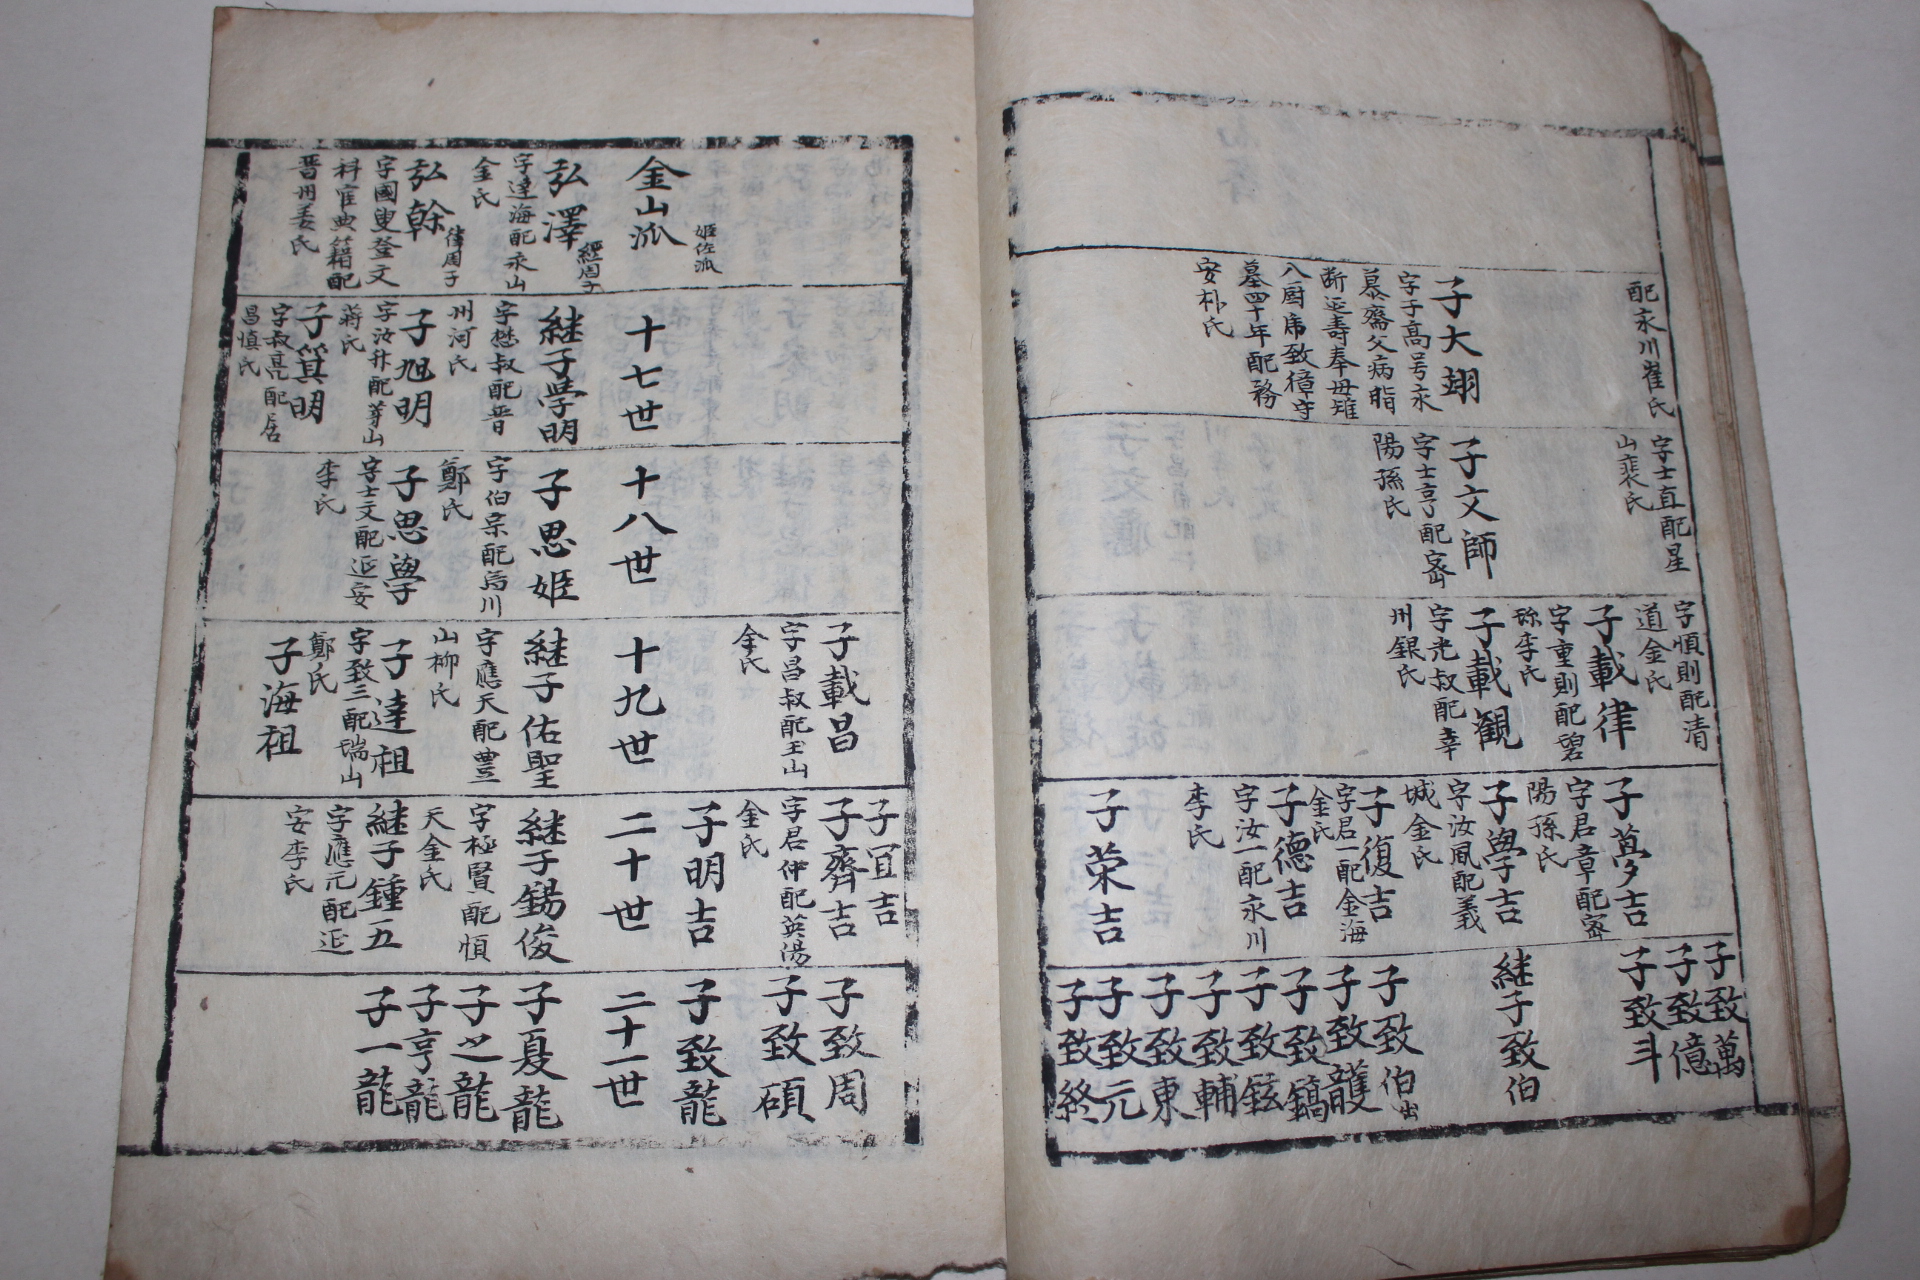 配永川崔氏
子大翊
字子高号永
慕齋父病脂
断延壽奉母雉
八厨席致獐守
墓四十年配務
安朴氏
字士直配星
山裵氏
子文師
字士亨配密
陽孫氏
字順則配清
道金氏
子載律
字重則配碧
珎李氏
子載觀
字光叔配幸
州銀氏
子夢吉
字君章配密
陽孫氏
子學吉
字汝鳳配義
城金氏
子復吉
字君一配金海
金氏
子德吉
字汝一配永川
李氏
子荣吉
子致萬
子致億
子致斗
継子致伯
子致伯出
子致頀
子致鎬
子致鉉
子致輔
子致東
子致元
子致終
子載昌
字昌叔配玉山
金氏
子冝吉
子齊吉
字君仲配英陽
金氏
子明吉
子致周
子致碩
子致龍
姬佐派
金山派
弘澤 經周子
字達海配永山
金氏
弘榦 緯周子
字國叟登文
科官典籍配
晋州姜氏
十七世
継子學明
字懋叔配晋
州河氏
子旭明
字汝升配芽山
蔣氏
子箕明
字叔亮配居
昌慎氏
十八世
子思姬
字伯宗配烏川
鄭氏
子思學
字士文配延安
李氏
十九世
継子佑聖
字應天配豊
山柳氏
子達祖
字致三配瑞山
鄭氏
子海祖
二十世
継子錫俊
字極賢配順
天金氏
継子鍾五
字應元配延
安李氏
二十一世
子夏龍
子之龍
子亨龍
子一龍